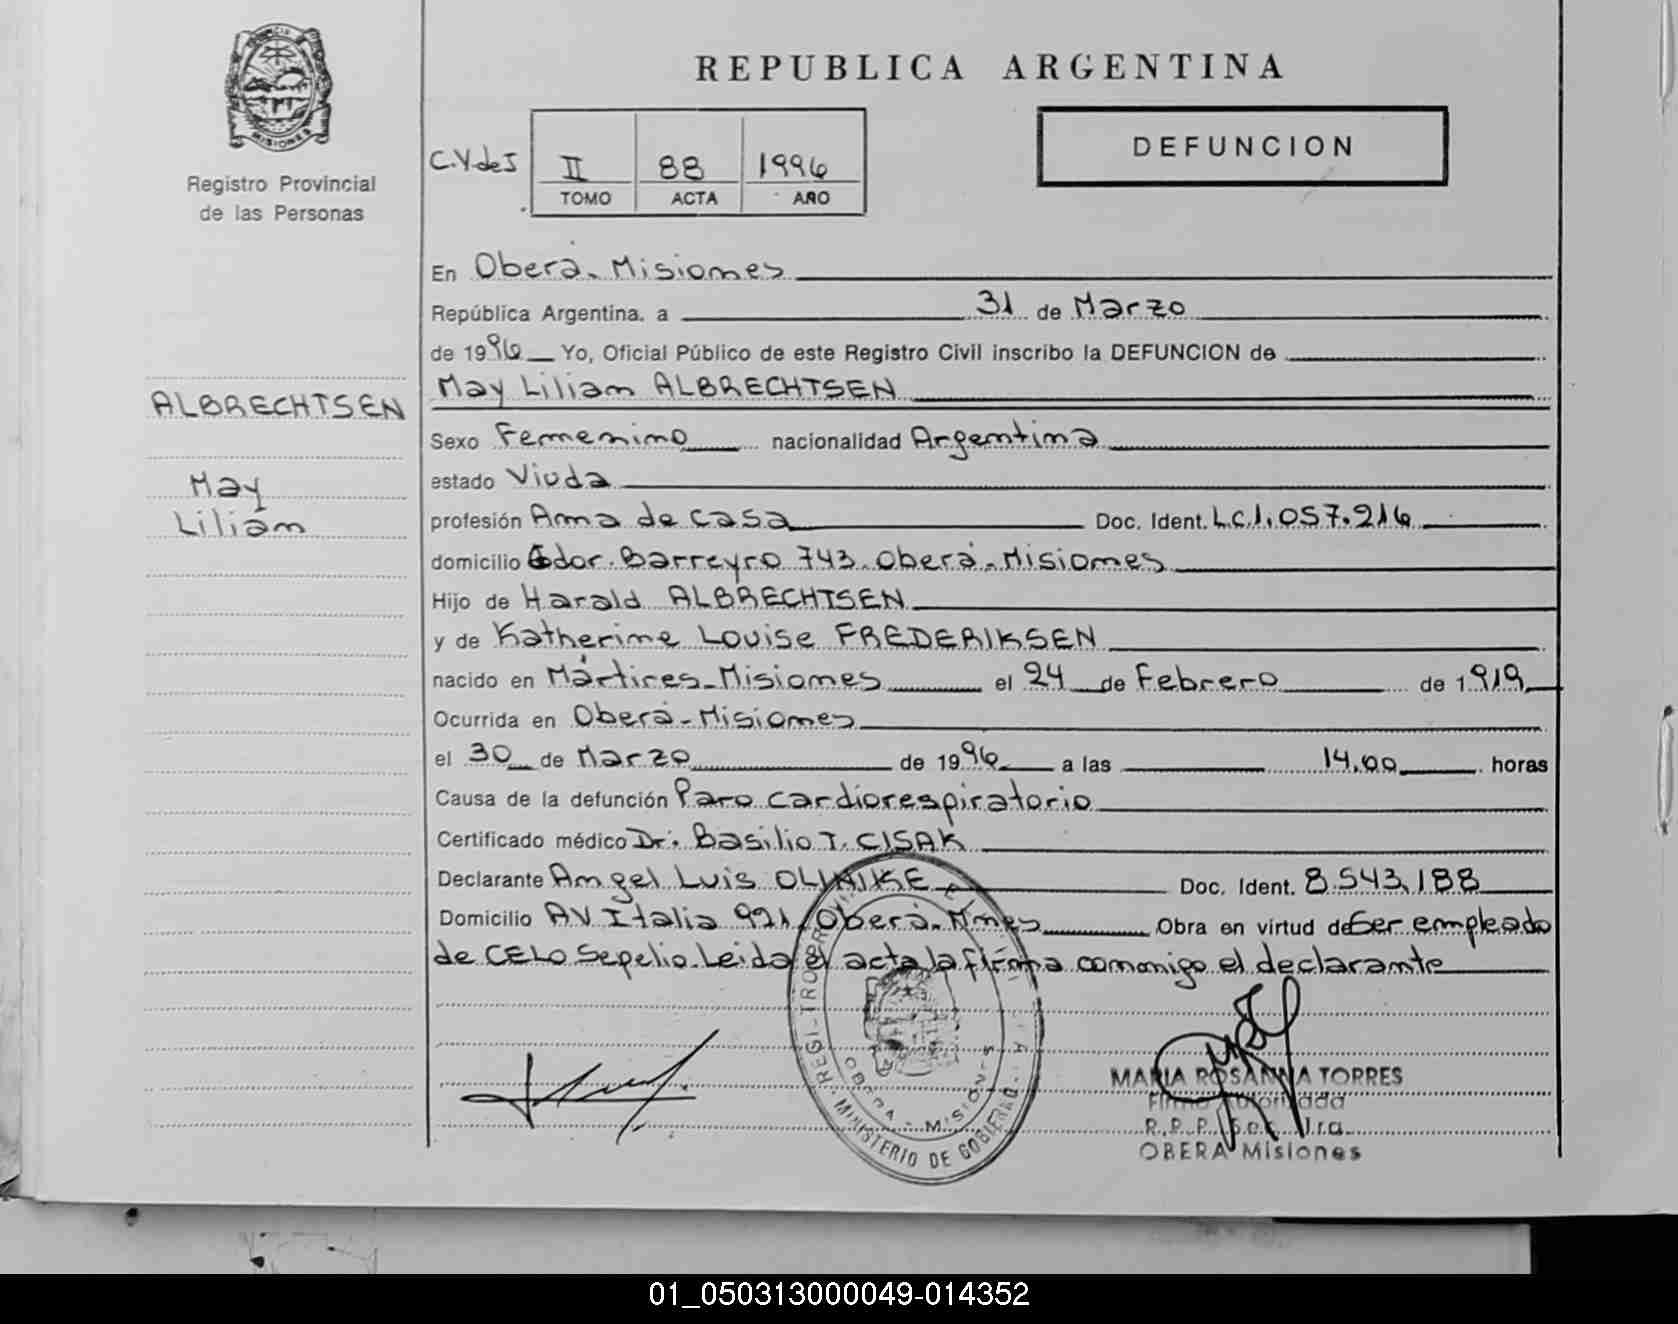 REPUBLICA ARGENTINA
MISIONES
Registro Provincial
de las Personas
C.Y.de I
II 88 1996
TOMO ACTA AÑO
DEFUNCION
En Oberá-Misiones
República Argentina, a 31 de Marzo
de 1996 Yo, Oficial Público de este Registro Civil inscribo la DEFUNCION de
ALBRECHTSEN
May
Lilian
May Lilian ALBRECHTSEN
Sexo Femenino nacionalidad Argentina
estado Viuda
profesión Ama de casa Doc. Ident. L.C.1.057.216
domicilio Gdor. Barreyro 743. Oberá-Misiones
Hijo de Harald ALBRECHTSEN
y de Katherine Louise FREDERIKSEN
nacido en Mártires-Misiones el 24 de Febrero de 1919
Ocurrida en Oberá-Misiones
el 30 de Marzo de 1996 a las 14,00 horas
Causa de la defunción Paro cardiorespiratorio
Certificado médico Dr. Basilio T. CISAK
Declarante Angel Luis OLINIKE Doc. Ident. 8.543.188
Domicilio AV. Italia 921, Oberá-Mnes Obra en virtud de Ser empleado
de CELO Sepelio. Leida el acta la firma conmigo el declarante
OBERA - MISIONES
MINISTERIO DE GOBIERNO
MARIA ROSANNA TORRES
Firma Autorizada
R.P.P. Sec. 1ra.
OBERA Misiones
01_050313000049-014352